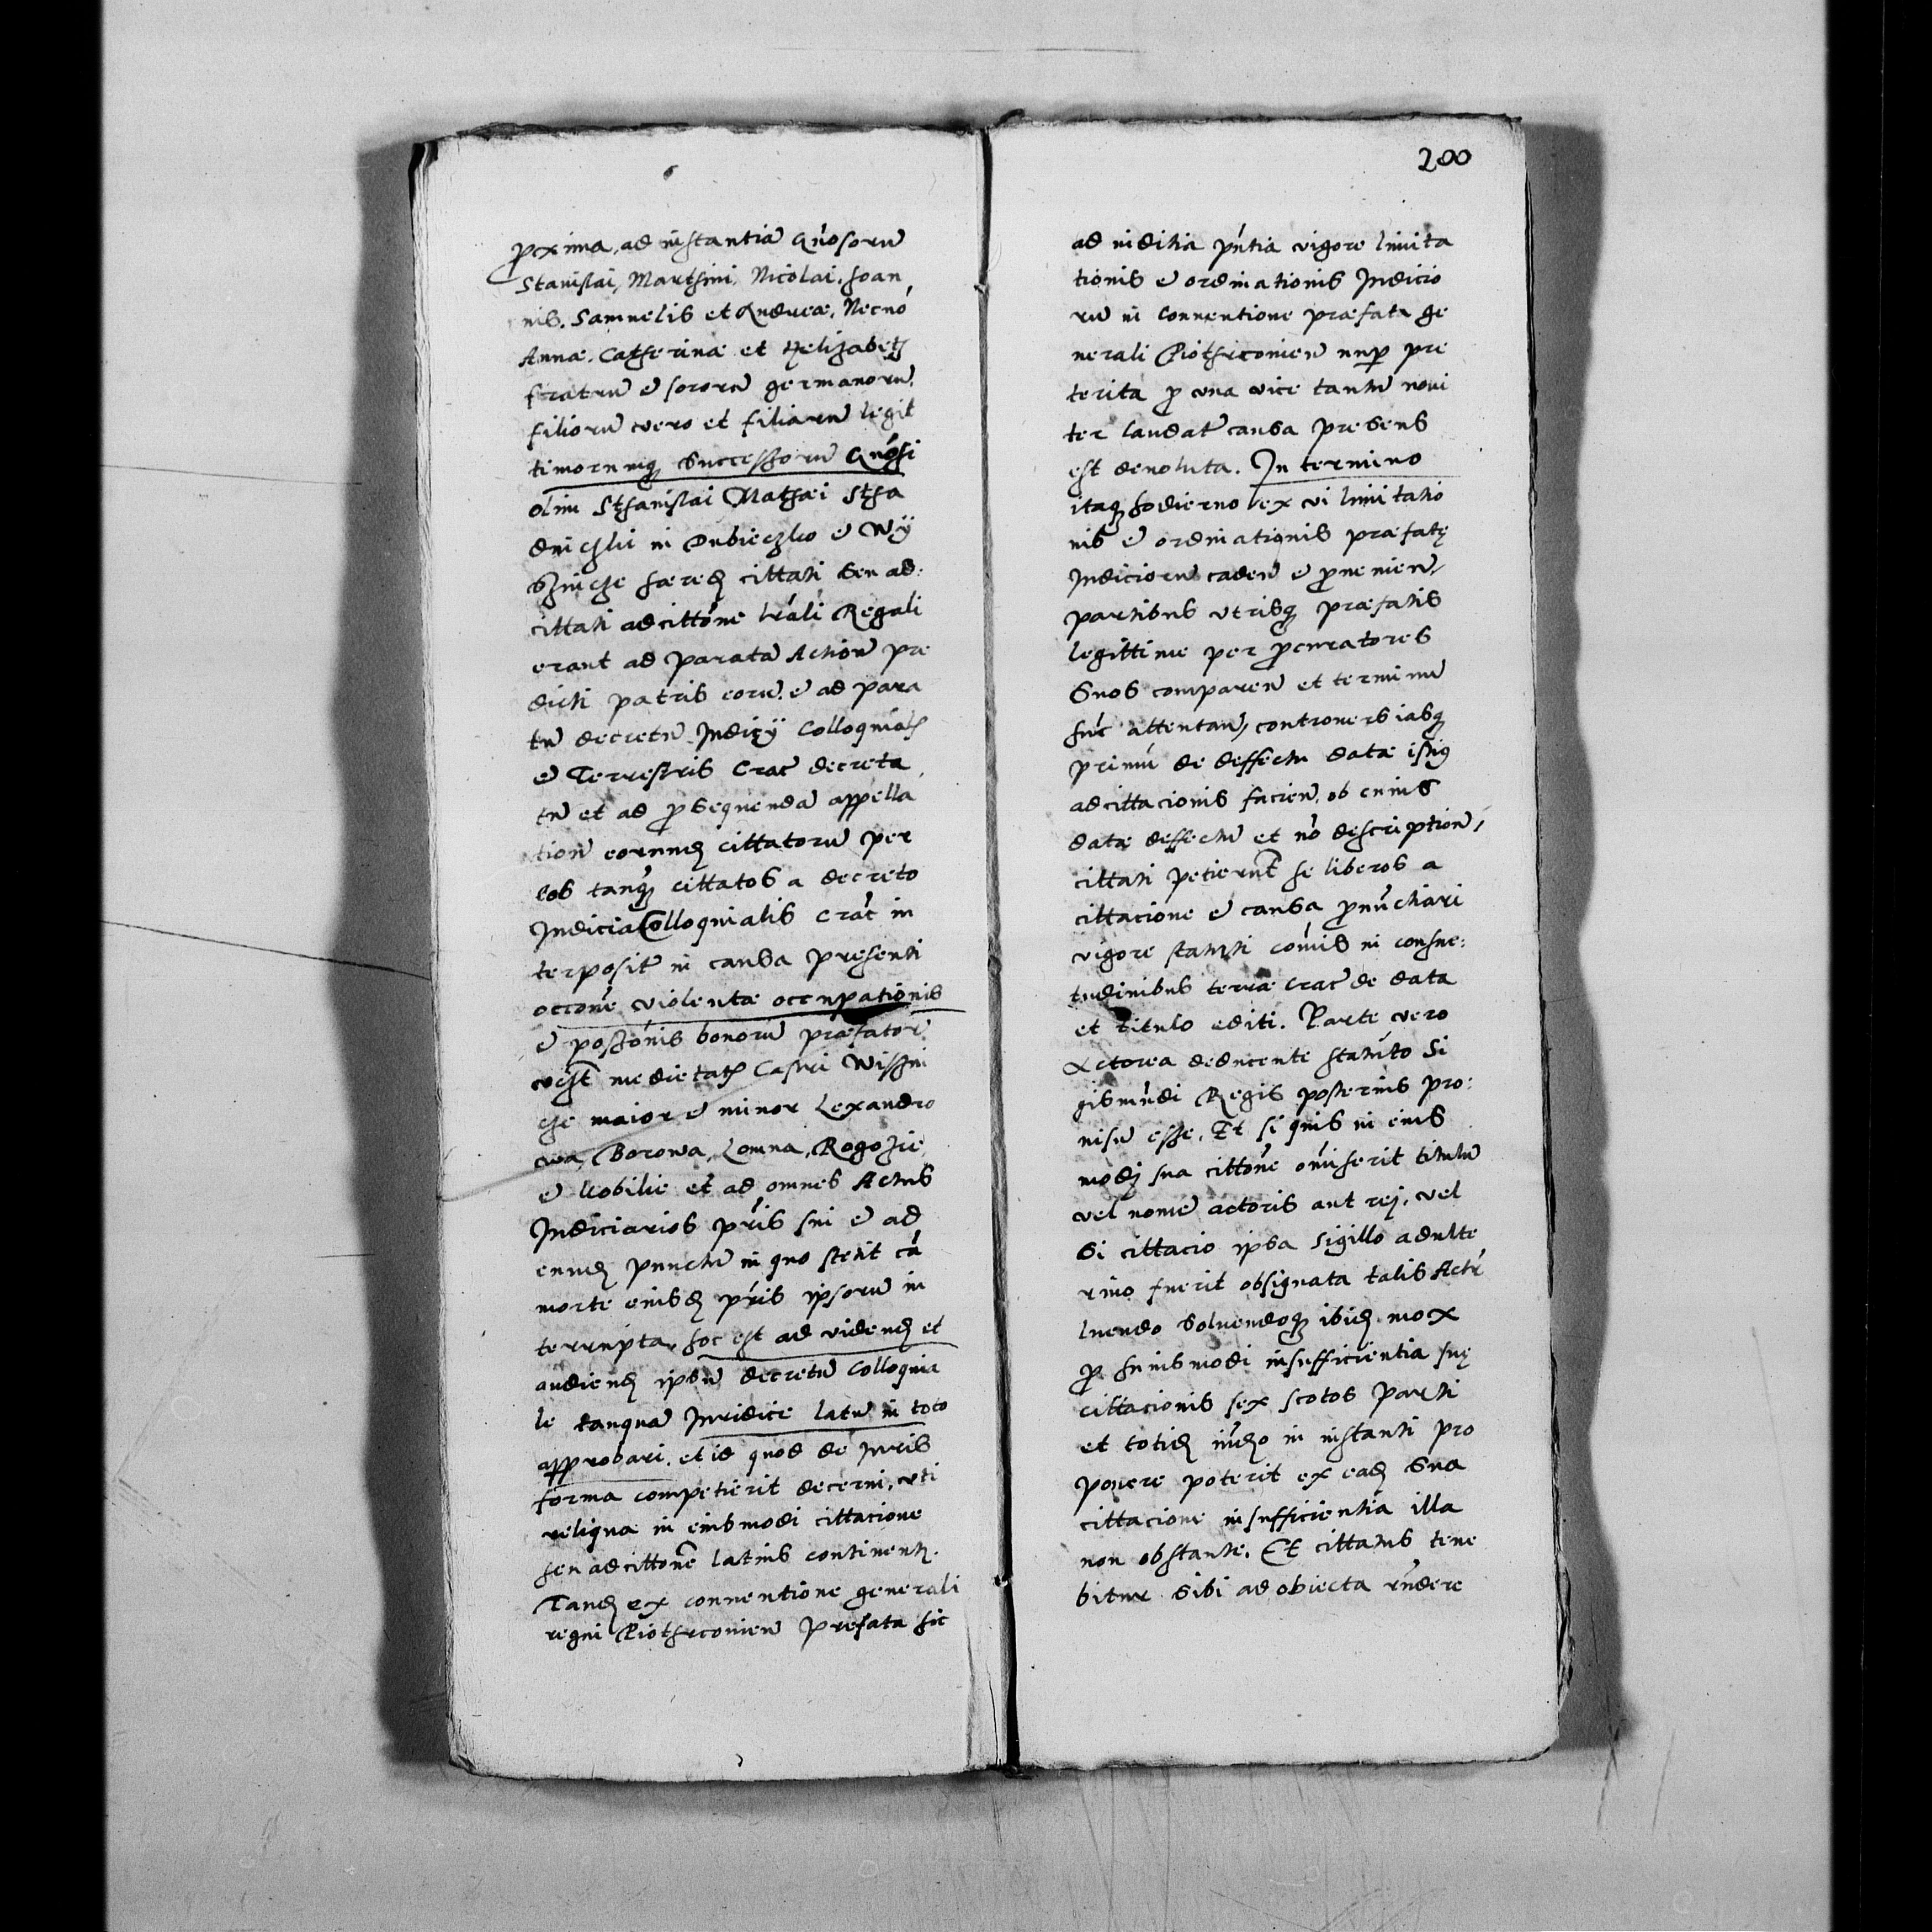 proxima, ad instantiã Gñosorũ
Stanislai, Marthini, Nicolai, Joan
nis, Samuelis et Andreæ, Necnõ
Annæ, Catherinæ et Helizabeth
fratrũ et sororũ germanorũ,
filiorũ vero et filiarũ legit
timorumq3 Successorũ Gñosi
olim Sthanislai Mathæi Stha
dnichzki in Dubieczko et Wÿ
szniche hæred cittati seu ad:
cittati adcittõne lrãli Regali
erant ad paratã Actionẽ præ
dicti patris eorũ, et ad para
tũ decretũ Judicÿ Colloquial
et Terrestris Crac̃ decreta
tũ et ad prosequendã appella
tionẽ eorumd cittatorũ per
eos tanq3 cittatos a decreto
Judicia Colloquialis Crac̃ in
terposit̃ in causa presenti
occõne violentæ occupationis
et possẽonis bonorũ præfator
vcz̃t medietatis Castri Wisni
cze maior et minor Lexandro
wa, Borowa, Lomna, Rogozie
et Kobilie et ad omnes Actus
Judiciarios pr̃is sui et ad
eund punctũ in quo stetit cã
morte eiusd pr̃is ipsorũ in
terrupta, hoc est ad vidend et
audiend ipsũ decretũ Colloquia
le tanquã Juridice latũ in toto
approbari, et id quod de Juris
forma competierit decerni, vti
reliqua in eiusmodi cittacione
seu adcittõne latius continent.
Tand ex conuentione generali
regni Piothrconien prefata hic
200
ad iuditia pñtia vigore limita
tionis et ordinationis Judicio
rũ in Conuentione præfata ge
nerali Piothrconien nup præ
terita pro vna vice tantũ noui
ter laudat causa presens
est deuoluta. In termino
itaq3 hodierno ex vi limitatio
nis et ordinationis præfatę
Judiciorũ caden et prouenien,
partibus vtrisq3 præfatis
legittime per procuratores
suos comparen et terminũ
hũc attentan, controuersiasq3
primũ de deffectu datæ istius
adcittacionis facien, ob cuius
datæ deffectũ et nõ descriptionẽ,
cittati petierunt se liberos a
cittacione et causa pronũctiari
vigore statuti cõmis in consue:
tudinibus terræ Crac̃ de data
et titulo editi. Parte vero
Actorea deducente statuto Si
gismũdi Regis posterius pro:
uisũ esse, Et si quis in eius
modj sua cittõne omiserit titulũ
vel nomẽ actoris aut rej, vel
si cittacio ipsa sigillo adulte
rino fuerit obsignata talis Actr̃
luendo soluendoq3 ibid mox
pro huiusmodi insufficientia suę
cittacionis sex scotos parti
et totid iud̃io in instanti pro
ponere poterit ex ead sua
cittacione insufficientia illa
non obstante, Et cittatus tene
bitur sibi ad obiecta rñdere